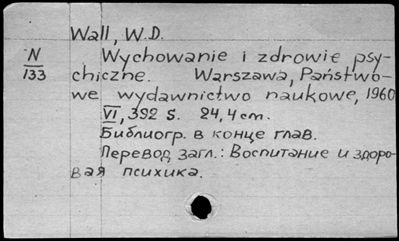 Wall, W.D.
N
133
Wychowanie i zdrowie psy-
chiczne. Warszawa, Państwo-
we wydawnictwo naukowe, 1960
VI, 392 s. 24,4 cm.
Библиогр. в конце глав.
Перевод загл.: Воспитание и здоро-
вая психика.